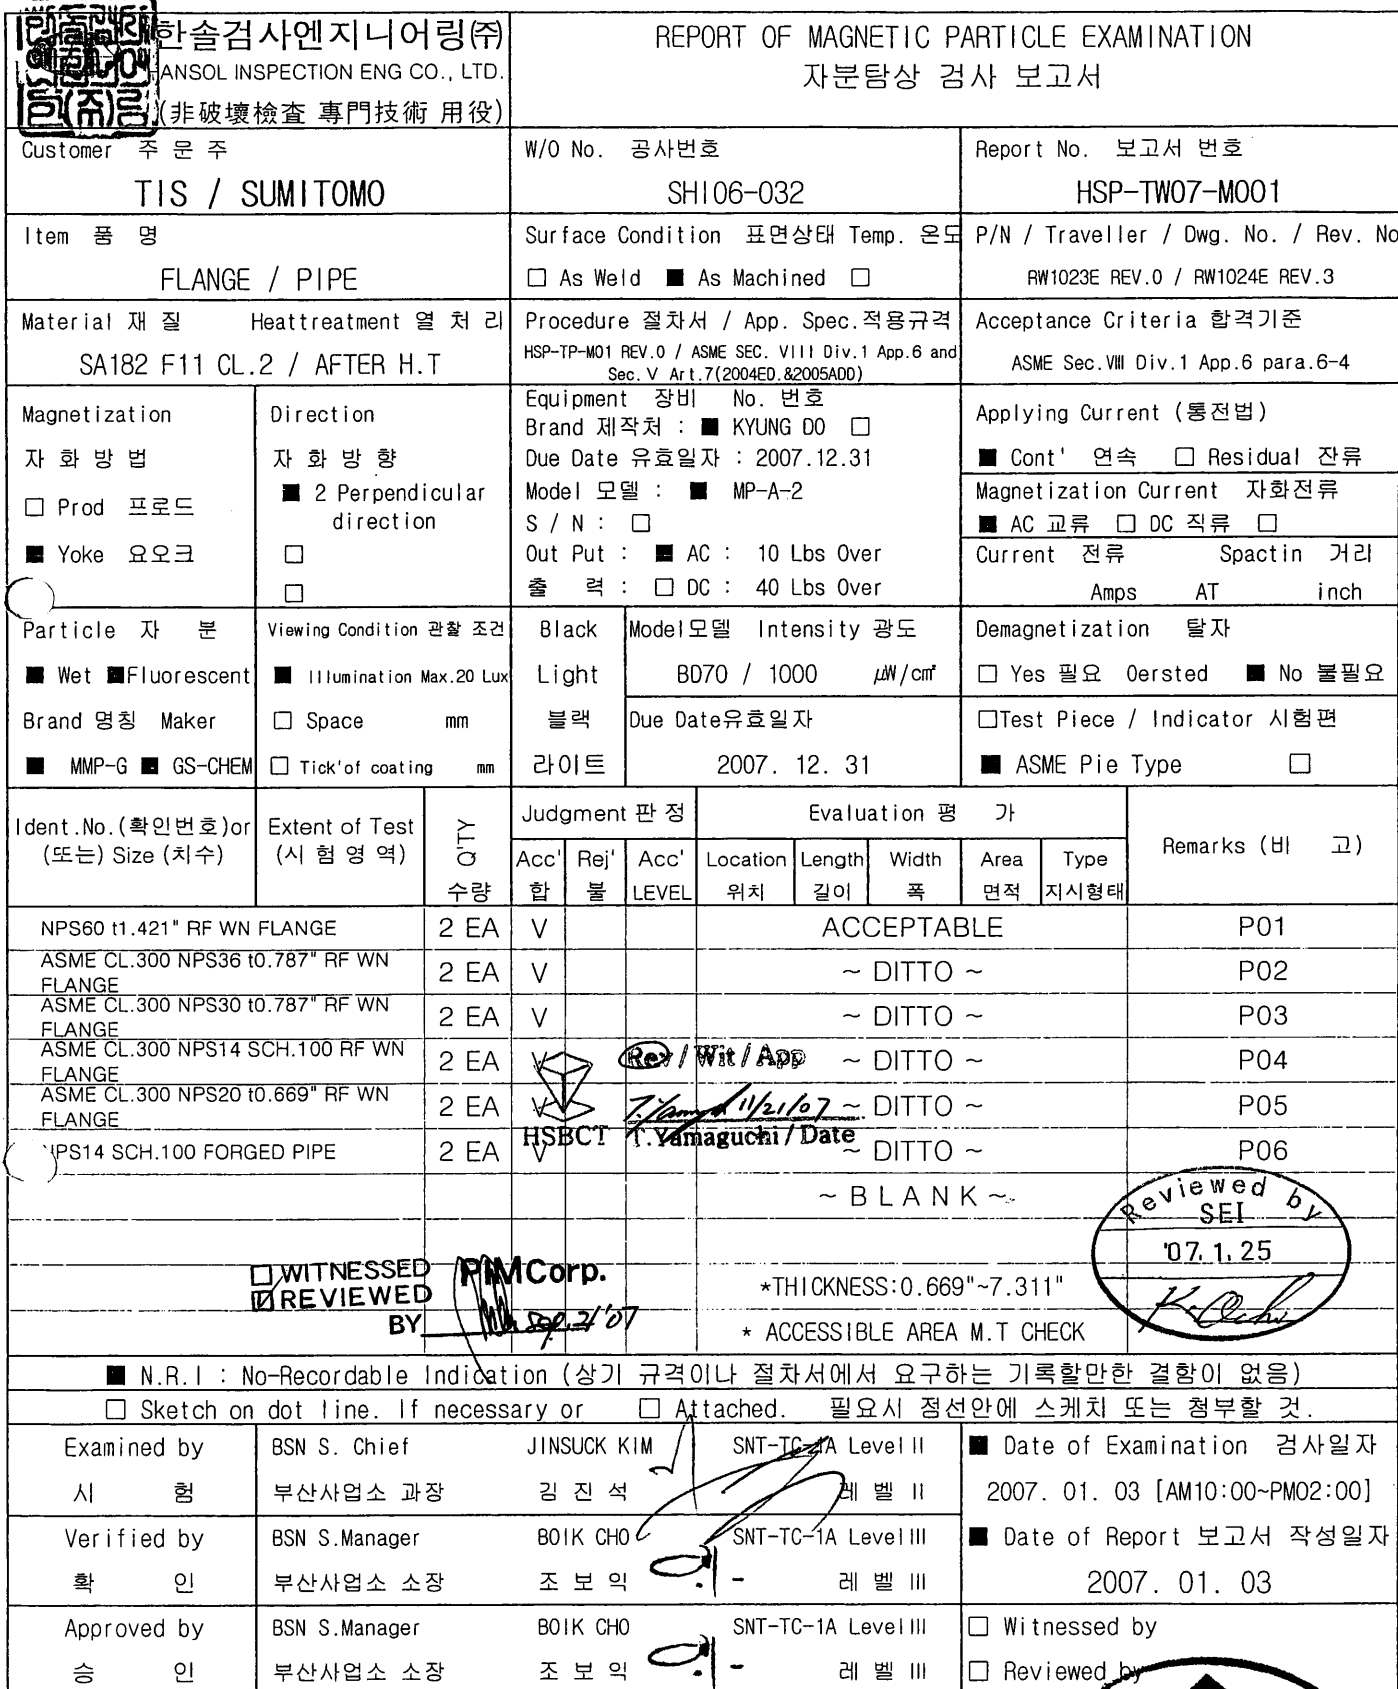 한솔검사엔지니어링(주)
HANSOL INSPECTION ENG CO., LTD.
(非破壞檢査 專門技術 用役)
REPORT OF MAGNETIC PARTICLE EXAMINATION
자분탐상 검사 보고서
Customer 주 문 주
TIS / SUMITOMO
W/O No. 공사번호
SHI06-032
Report No. 보고서 번호
HSP-TW07-M001
Item 품 명
FLANGE / PIPE
Surface Condition 표면상태 Temp. 온도
□ As Weld ■ As Machined □
P/N / Traveller / Dwg. No. / Rev. No
RW1023E REV.0 / RW1024E REV.3
Material 재 질 Heattreatment 열 처 리
SA182 F11 CL.2 / AFTER H.T
Procedure 절차서 / App. Spec.적용규격
HSP-TP-M01 REV.0 / ASME SEC. VIII Div.1 App.6 and
Sec.V Art.7(2004ED.&2005ADD)
Acceptance Criteria 합격기준
ASME Sec.Ⅷ Div.1 App.6 para.6-4
Magnetization
자 화 방 법
□ Prod 프로드
■ Yoke 요오크
Direction
자 화 방 향
■ 2 Perpendicular
direction
□
□
Equipment 장비 No. 번호
Brand 제작처 : ■ KYUNG DO □
Due Date 유효일자 : 2007.12.31
Model 모델 : ■ MP-A-2
S / N : □
Out Put : ■ AC : 10 Lbs Over
출 력 : □ DC : 40 Lbs Over
Applying Current (통전법)
■ Cont' 연속 □ Residual 잔류
Magnetization Current 자화전류
■ AC 교류 □ DC 직류 □
Current 전류 Spactin 거리
Amps AT inch
Particle 자 분
■ Wet ■Fluorescent
Brand 명칭 Maker
■ MMP-G ■ GS-CHEM
Viewing Condition 관찰 조건
■ Illumination Max.20 Lux
□ Space mm
□ Tick'of coating mm
Black
Light
블랙
라이트
Model모델 Intensity 광도
BD70 / 1000 μW/㎠
Due Date유효일자
2007. 12. 31
Demagnetization 탈자
□ Yes 필요 Oersted ■ No 불필요
□Test Piece / Indicator 시험편
■ ASME Pie Type □
Ident.No.(확인번호)or
(또는) Size (치수)
Extent of Test
(시 험 영 역)
Q'TY
수량
Judgment 판 정
Acc' Rej' Acc'
합 불 LEVEL
Evaluation 평 가
Location Length Width Area Type
위치 길이 폭 면적 지시형태
Remarks (비 고)
NPS60 t1.421" RF WN FLANGE 2 EA V ACCEPTABLE P01
ASME CL.300 NPS36 t0.787" RF WN
FLANGE 2 EA V ~ DITTO ~ P02
ASME CL.300 NPS30 t0.787" RF WN
FLANGE 2 EA V ~ DITTO ~ P03
ASME CL.300 NPS14 SCH.100 RF WN
FLANGE 2 EA V ~ DITTO ~ P04
ASME CL.300 NPS20 t0.669" RF WN
FLANGE 2 EA V ~ DITTO ~ P05
NPS14 SCH.100 FORGED PIPE 2 EA V ~ DITTO ~ P06
Rev / Wit / App
11/21/07
HSBCT T.Yamaguchi / Date
~ B L A N K ~
Reviewed by
SEI
'07. 1. 25
K. Ochi
□ WITNESSED
☑ REVIEWED
BY
PIM Corp.
Sep. 21 '07
*THICKNESS:0.669"~7.311"
* ACCESSIBLE AREA M.T CHECK
■ N.R.I : No-Recordable Indication (상기 규격이나 절차서에서 요구하는 기록할만한 결함이 없음)
□ Sketch on dot line. If necessary or □ Attached. 필요시 점선안에 스케치 또는 첨부할 것.
Examined by
시 험
BSN S. Chief JINSUCK KIM SNT-TC-1A Level II
부산사업소 과장 김 진 석 레 벨 II
Verified by
확 인
BSN S.Manager BOIK CHO SNT-TC-1A Level III
부산사업소 소장 조 보 익 - 레 벨 III
Approved by
승 인
BSN S.Manager BOIK CHO SNT-TC-1A Level III
부산사업소 소장 조 보 익 - 레 벨 III
■ Date of Examination 검사일자
2007. 01. 03 [AM10:00~PM02:00]
■ Date of Report 보고서 작성일자
2007. 01. 03
□ Witnessed by
□ Reviewed by